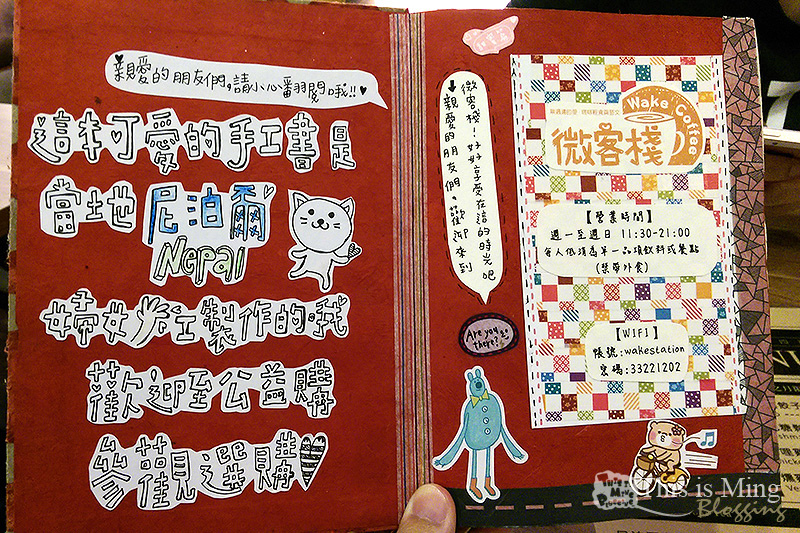 親愛的朋友們,請小心翻閱哦!!
這本可愛的手工書是
當地尼泊爾
Nepal
婦女手工製作的哦
歡迎至公益購
參觀選購
親愛的朋友們。歡迎來到
微客棧!好好享受在這的時光吧
Are you there?
Wake Coffee
微客棧
【營業時間】
週一至週日 11:30-21:00
每人低消為單一品項飲料或餐點
(禁帶外食)
【WIFI】
帳號:wakestation
密碼:33221202
This is Ming
Blogging